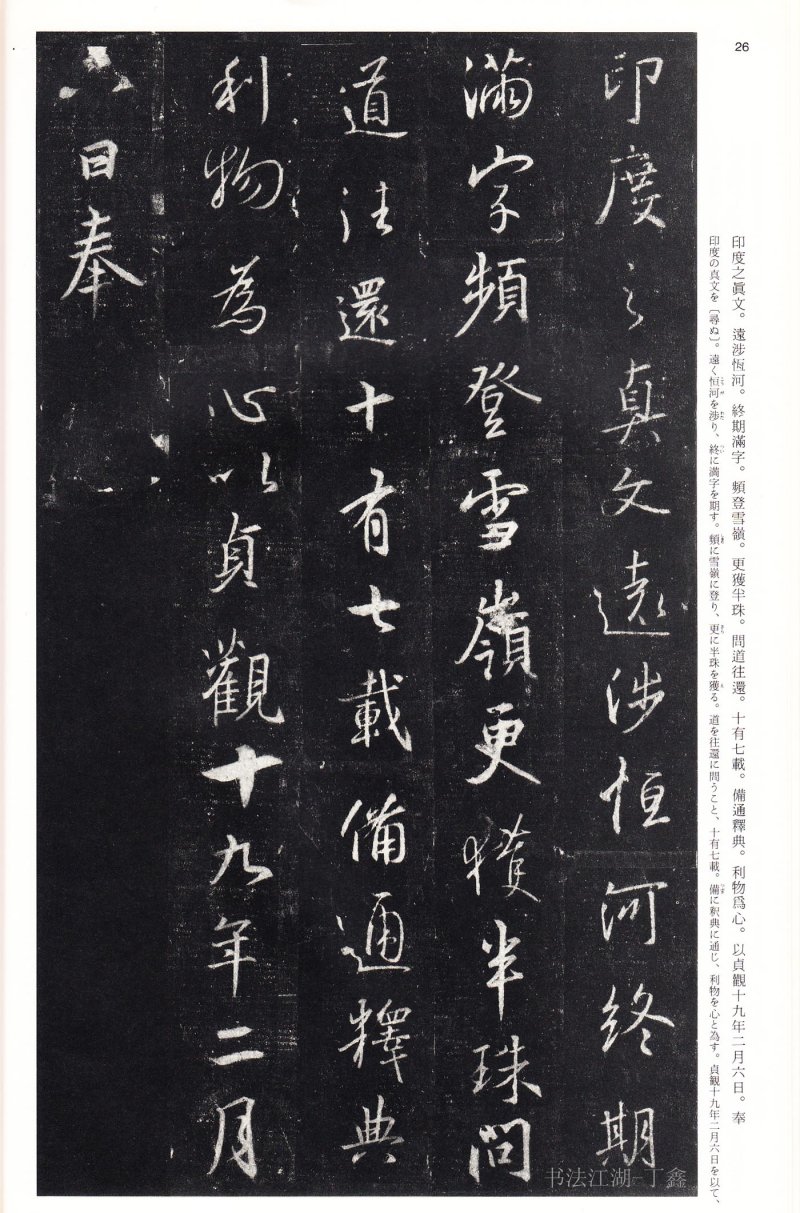 26
印度之眞文。遠涉恆河。終期滿字。頻登雪嶺。更獲半珠。問道往還。十有七載。備通釋典。利物爲心。以貞觀十九年二月六日。奉
印度の真文を〔尋ぬ〕。遠く恒河を渉り、終に満字を期す。頻に雪嶺に登り、更に半珠を獲る。道を往還に問うこと、十有七載。備に釈典に通じ、利物を心と為す。貞観十九年二月六日を以て、
印度之真文遠涉恒河終期
滿字頻登雪嶺更獲半珠問
道往還十有七載備通釋典
利物為心以貞觀十九年二月
六日奉
书法江湖-丁鑫